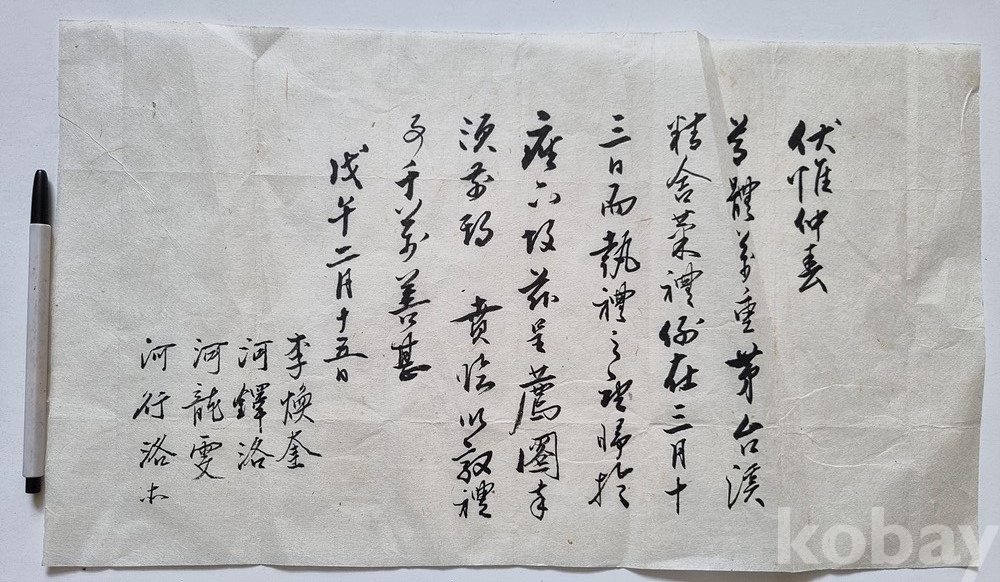 伏惟仲春
尊體萬重第台溪
精舍菜禮例在三月十
三日而執禮之望歸於
座下故玆呈薦圈幸
須前期 賁臨以敦禮
事千萬善甚
戊午二月十五日
李煥奎
河鐸洛
河龍雯
河行洛
kobay